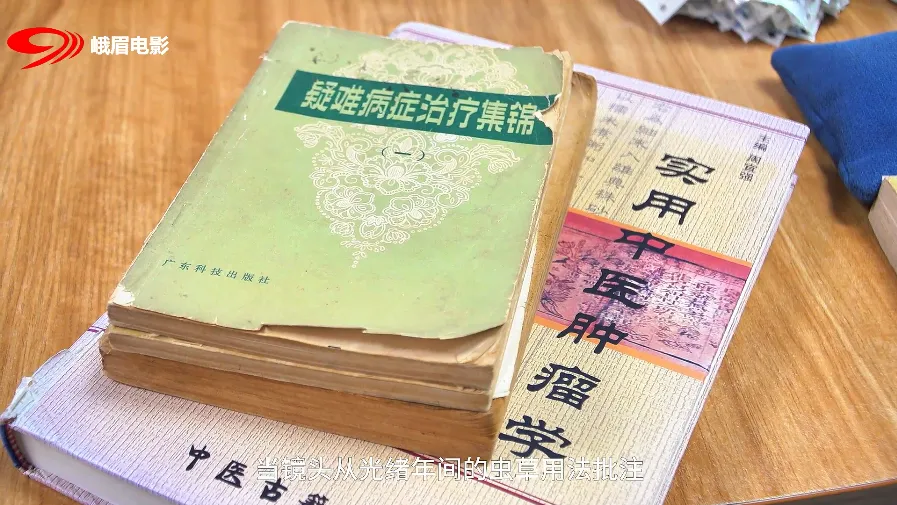 峨眉电影
疑难病症治疗集锦
(一)
广东科技出版社
主编 周宜强
实用中医肿瘤学
中医古籍
当镜头从光绪年间的虫草用法批注